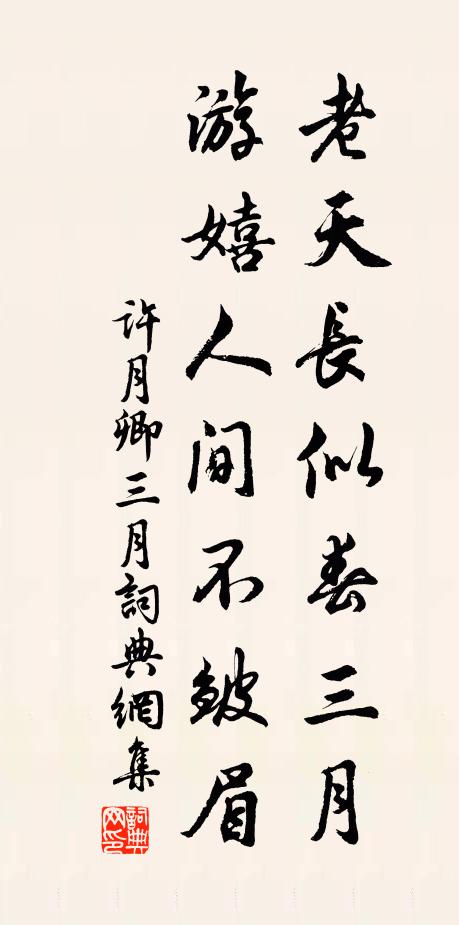 老天長似春三月
游嬉人间不皴眉
許月卿三月詞典網集
詞典
网印